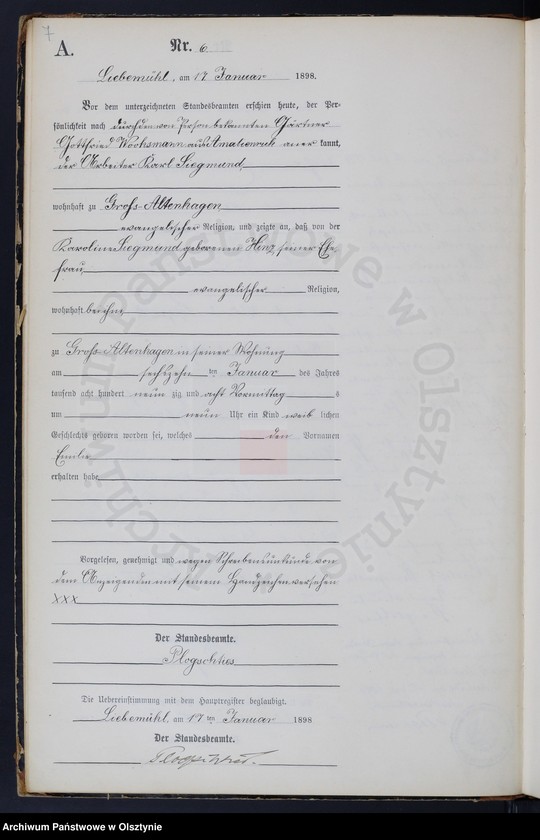 7
A.
Nr. 6
Liebemühl, am 17 Januar 1898.
Vor dem unterzeichneten Standesbeamten erschien heute, der Per-
sönlichkeit nach durch den von Person bekannten Gärtner
Gottfried Wochsmann aus Amalienruh aner kannt,
der Arbeiter Karl Siegmund
wohnhaft zu Groß-Altenhagen
evangelischer Religion, und zeigte an, daß von der
Karoline Siegmund geborenen Hinz, seiner Ehe-
frau
evangelischer Religion,
wohnhaft bei ihm,
zu Groß-Altenhagen in seiner Wohnung
am sechszehn ten Januar des Jahres
tausend acht hundert neun zig und acht Vormittag s
um neun Uhr ein Kind weib lichen
Geschlechts geboren worden sei, welches den Vornamen
Emilie
erhalten habe
Vorgelesen, genehmigt und wegen Schreibensunkunde von
dem Anzeigenden mit seinem Handzeichen versehen
XXX
Der Standesbeamte.
Plogschties
Die Uebereinstimmung mit dem Hauptregister beglaubigt.
Liebemühl, am 17 ten Januar 1898
Der Standesbeamte.
Plogschties.
Archiwum Państwowe w Olsztynie
Archiwum Państwowe w Olsztynie